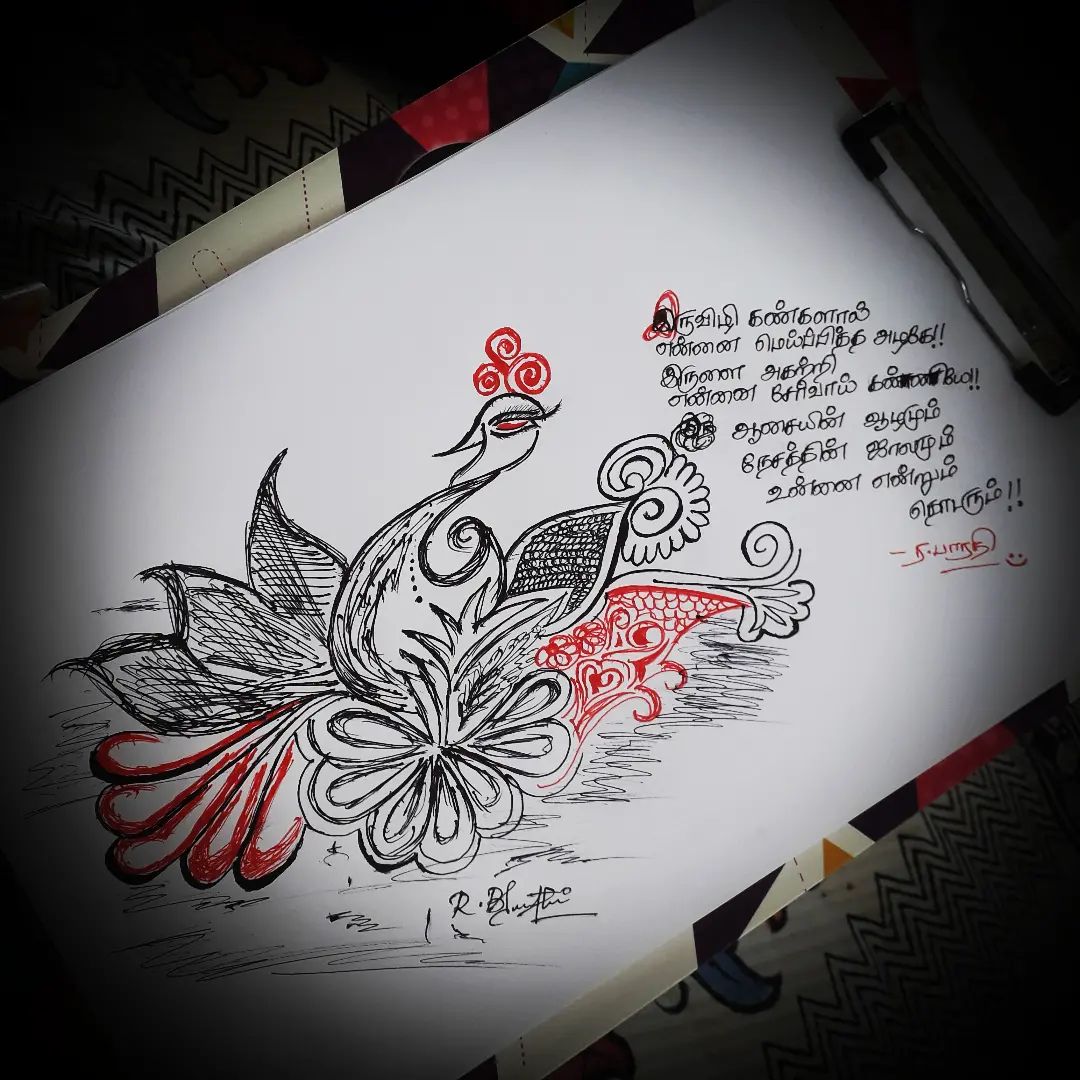 இருவிழி கண்களால்
என்னை மெய்ப்பித்த அழகே!!
இருளை அகற்றி
என்னை சேர்வாய் கண்ணிமே!!
ஆசையின் ஆழமும்
நேசத்தின் ஜாலமும்
உன்னை என்றும்
தொடரும்!!
- ர.பாரதி
R. Bharathi